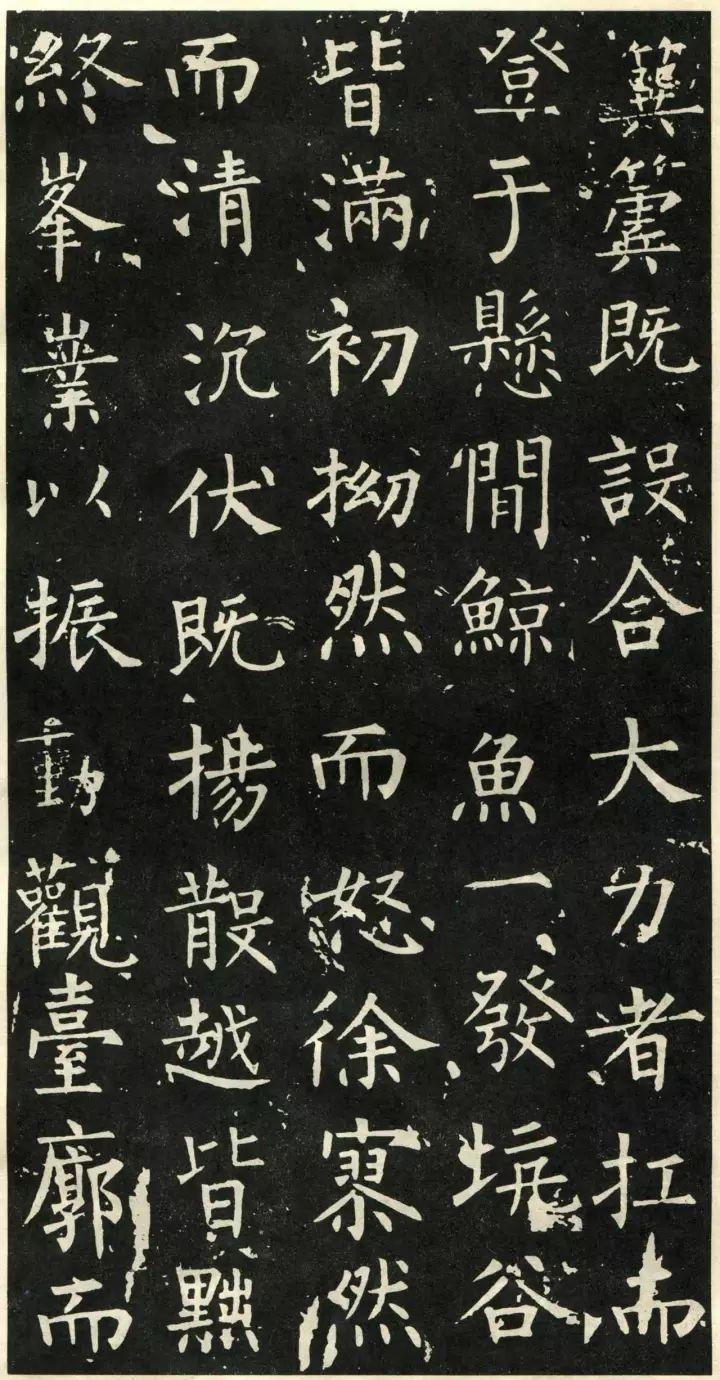 簨簴既設合大力者扛而
登于懸間鯨魚一發坑谷
皆滿初拗然而怒徐寥然
而清沉伏既揚散越皆黜
終峯嶪以振動觀臺廓而